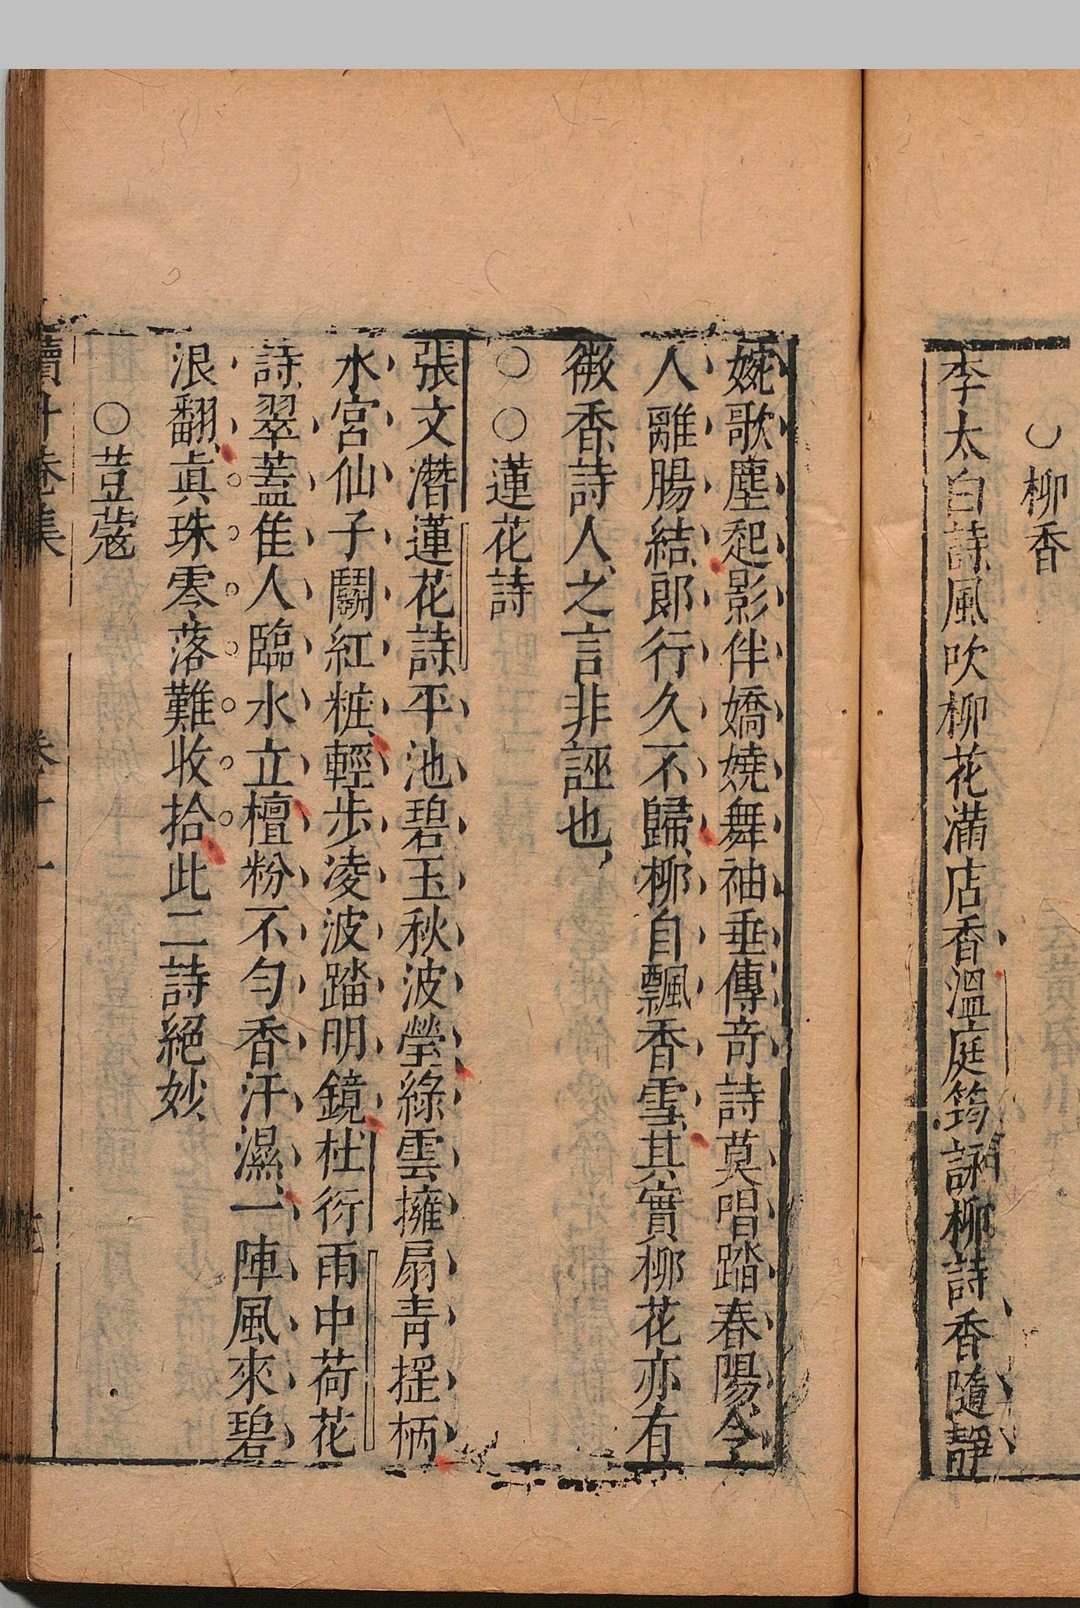 ○柳香
李太白詩風吹柳花滿店香溫庭筠詠柳詩香隨靜
婉歌塵起影伴嬌嬈舞袖垂傳奇詩莫唱踏春陽令
人離腸結郎行久不歸柳自飄香雪其實柳花亦有
微香詩人之言非誣也
○○蓮花詩
張文潛蓮花詩平池碧玉秋波瑩綠雲擁扇青搖柄
水宮仙子鬭紅粧輕步凌波踏明鏡杜衍雨中荷花
詩翠蓋佳人臨水立檀粉不勻香汗濕一陣風來碧
浪翻眞珠零落難收拾此二詩絕妙
○荳蔻
卷十一